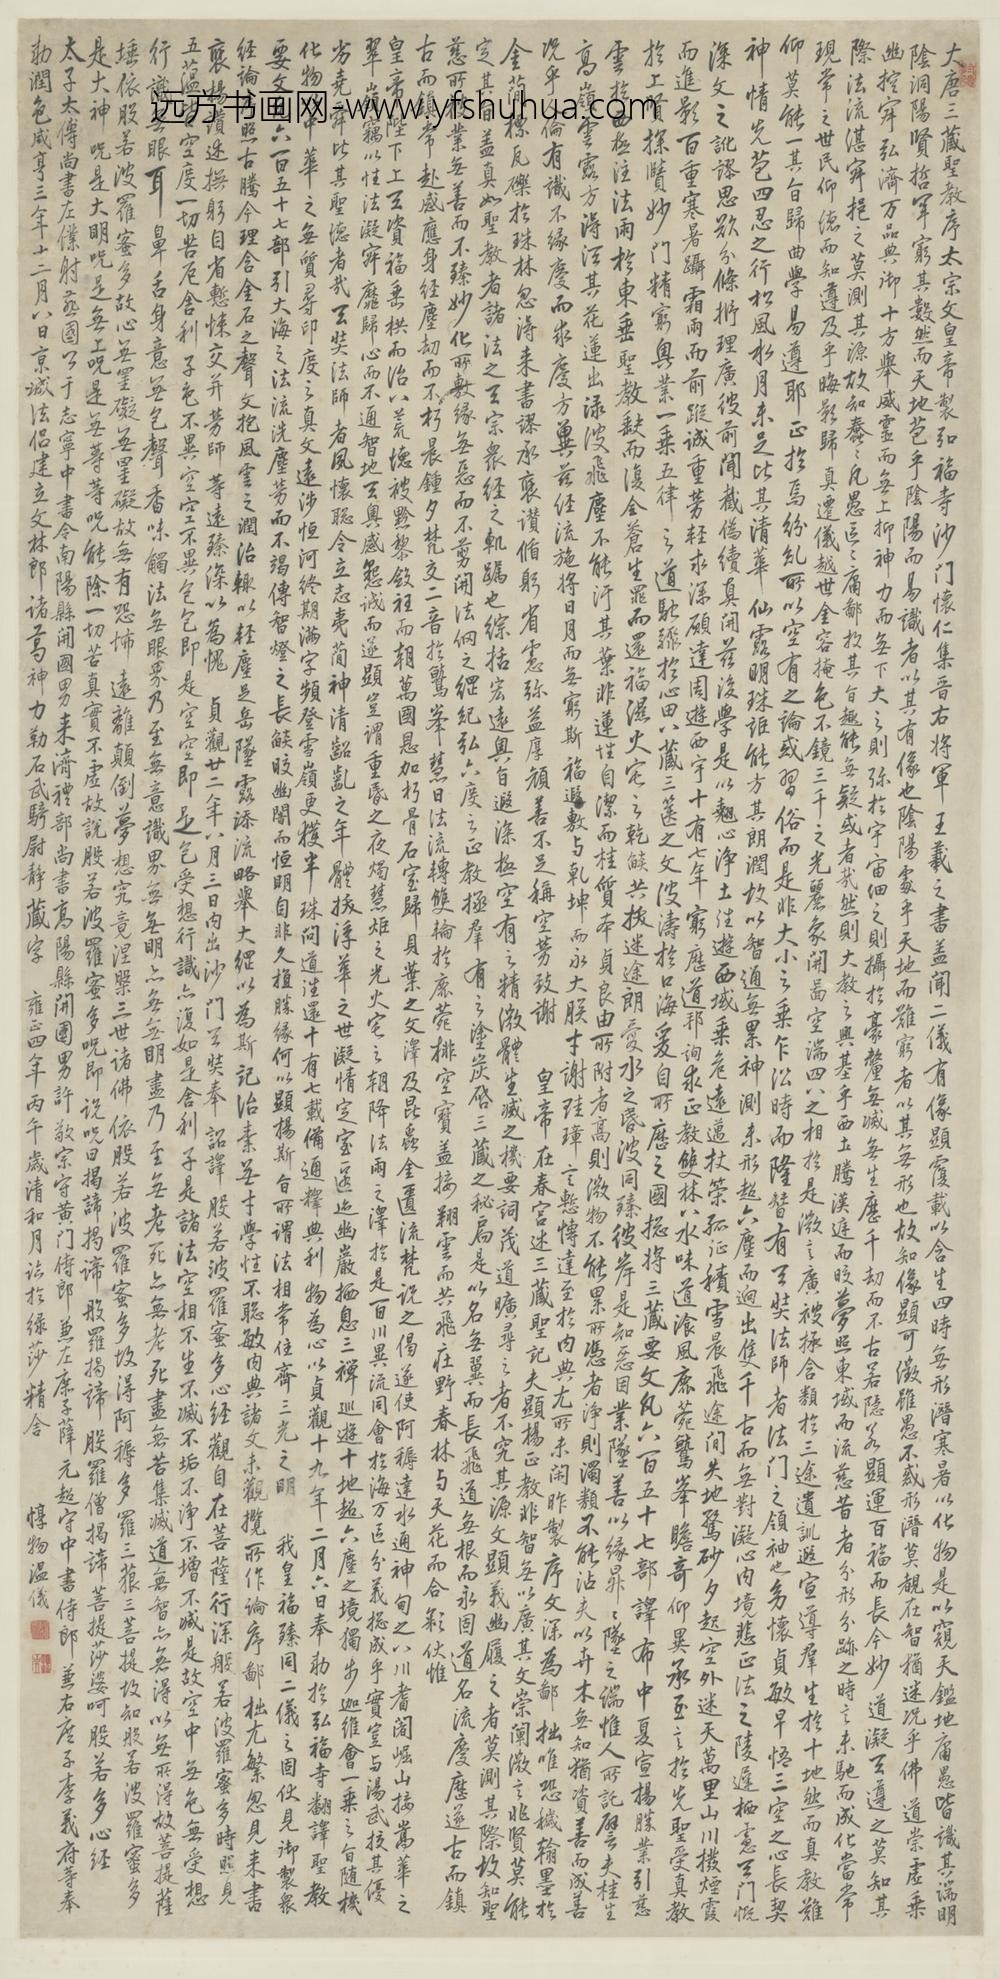 远方书画网-www.yfshuhua.com
大唐三藏聖教序太宗文皇帝製弘福寺沙門懷仁集晉右將軍王羲之書蓋聞二儀有像顯覆載以含生四時無形潛寒暑以化物是以窺天鑑地庸愚皆識其端明
陰洞陽賢哲罕窮其數然而天地苞乎陰陽而易識者以其有像也陰陽處乎天地而難窮者以其無形也故知像顯可徵雖愚不惑形潛莫覩在智猶迷況乎佛道崇虛乘
幽控寂弘濟万品典御十方舉威靈而無上抑神力而無下大之則弥於宇宙細之則攝於豪釐無滅無生歷千劫而不古若隱若顯運百福而長今妙道凝玄遵之莫知其
際法流湛寂挹之莫測其源故知蠢々凡愚區々庸鄙投其旨趣能無疑或者哉然則大教之興基乎西土騰漢庭而皎夢照東域而流慈昔者分形分跡之時言未馳而成化當常
現常之世民仰德而知遵及乎晦影歸真遷儀越世金容掩色不鏡三千之光麗象開圖空端四八之相於是微言廣被拯含類於三途遺訓遐宣導羣生於十地然而真教難
仰莫能一其旨歸曲學易遵耶正於焉紛糺所以空有之論或習俗而是非大小之乘乍沿時而隆替有玄奘法師者法門之領袖也幼懷貞敏早悟三空之心長契
神情先苞四忍之行松風水月未足比其清華仙露明珠詎能方其朗潤故以智通無累神測未形超六塵而迥出隻千古而無對凝心內境悲正法之陵遲栖慮玄門慨
深文之訛謬思欲分條析理廣彼前聞截偽續真開茲後學是以翹心淨土往遊西域乘危遠邁杖策孤征積雪晨飛途間失地驚砂夕起空外迷天萬里山川撥煙霞
而進影百重寒暑躡霜雨而前蹤誠重勞輕求深願達周遊西宇十有七年窮歷道邦詢求正教雙林八水味道飡風鹿菀鷲峯瞻奇仰異承至言於先聖受真教
於上賢探賾妙門精窮奧業一乘五律之道馳驟於心田八藏三篋之文波濤於口海爰自所歷之國總將三藏要文凡六百五十七部譯布中夏宣揚勝業引慈
雲於西極注法雨於東垂聖教缺而復全蒼生罪而還福濕火宅之乾焰共拔迷途朗愛水之昏波同臻彼岸是知惡因業墜善以緣昇々墜之端惟人所託譬夫桂生
高嶺雲露方得泫其花蓮出淥波飛塵不能汙其葉非蓮性自潔而桂質本貞良由所附者高則微物不能累所憑者淨則濁類不能沾夫以卉木無知猶資善而成善
況乎人倫有識不緣慶而求慶方冀茲經流施將日月而無窮斯福遐敷与乾坤而永大朕才謝珪璋言慙博達至於內典尤所未閑昨製序文深為鄙拙唯恐穢翰墨於
金簡標瓦礫於珠林忽得来書謬承褒讚循躬省慮弥益厚顏善不足稱空勞致謝 皇帝在春宮述三藏聖記夫顯揚正教非智無以廣其文崇闡微言非賢莫能
定其旨蓋真如聖教者諸法之玄宗眾經之軌躅也綜括宏遠奧旨遐深極空有之精微體生滅之機要詞茂道曠尋之者不究其源文顯義幽履之者莫測其際故知聖
慈所被業無善而不臻妙化所敷緣無惡而不剪開法網之綱紀弘六度之正教拯羣有之塗炭啓三藏之秘扃是以名無翼而長飛道無根而永固道名流慶歷遂古而鎮
古而鎮常赴感應身經塵劫而不朽晨鍾夕梵交二音於鷲峯慧日法流轉雙輪於鹿菀排空寶蓋接翔雲而共飛莊野春林与天花而合彩伏惟
皇帝陛下上玄資福垂拱而治八荒德被黔黎斂衽而朝萬國恩加朽骨石室歸貝葉之文澤及昆蟲金匱流梵說之偈遂使阿耨達水通神甸之八川耆闍崛山接嵩華之
翠嶺竊以性法凝寂靡歸心而不通智地玄奧感懇誠而遂顯豈謂重昏之夜燭慧炬之光火宅之朝降法雨之澤於是百川異流同會於海万區分義總成乎實豈与湯武校其優
劣堯舜比其聖德者哉玄奘法師者夙懷聰令立志夷簡神清齠齔之年體拔浮華之世凝情定室匿迹幽巖栖息三禪巡遊十地超六塵之境獨步迦維會一乘之旨隨機
化物以中華之無質尋印度之真文遠涉恒河終期滿字頻登雪嶺更獲半珠問道往還十有七載備通釋典利物為心以貞觀十九年二月六日奉勅於弘福寺翻譯聖教
要文凡六百五十七部引大海之法流洗塵勞而不竭傳智燈之長焰皎幽闇而恒明自非久植勝緣何以顯揚斯旨所謂法相常住齊三光之明 我皇福臻同二儀之固伏見御製眾
經論序照古騰今理含金石之聲文抱風雲之潤治輒以輕塵足岳墜露添流略舉大綱以為斯記治素無才學性不聰敏內典諸文未觀攬所作論序鄙拙尤繁忽見来書
褒揚讚述撫躬自省慙悚交并勞師等遠臻深以為愧 貞觀廿二年八月三日內出沙門玄奘奉 詔譯 般若波羅蜜多心經觀自在菩薩行深般若波羅蜜多時照見
五蘊皆空度一切苦厄舍利子色不異空空不異色色即是空空即是色受想行識亦復如是舍利子是諸法空相不生不滅不垢不淨不增不減是故空中無色無受想
行識無眼耳鼻舌身意無色聲香味觸法無眼界乃至無意識界無無明亦無無明盡乃至無老死亦無老死盡無苦集滅道無智亦無得以無所得故菩提薩
埵依般若波羅蜜多故心無罣礙無罣礙故無有恐怖遠離顛倒夢想究竟涅槃三世諸佛依般若波羅蜜多故得阿耨多羅三藐三菩提故知般若波羅蜜多
是大神咒是大明咒是無上咒是無等等咒能除一切苦真實不虛故說般若波羅蜜多咒即說咒曰揭諦揭諦般羅揭諦般羅僧揭諦菩提莎婆呵般若多心經
太子太傅尚書左僕射燕國公于志寧中書令南陽縣開國男来濟禮部尚書高陽縣開國男許敬宗守黃門侍郎兼左庶子薛元超守中書侍郎兼右庶子李義府等奉
勅潤色咸亨三年十二月八日京城法侣建立文林郎諸葛神力勒石武騎尉朱靜藏字 雍正四年丙午歲清和月訖於綠莎精舍 惇物溫儀